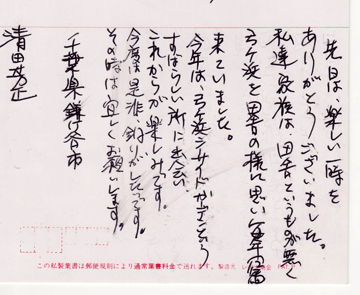 先日は、楽しい一時を
ありがとうございました。
私達家族は、田舎というものが無く
弓ヶ浜を田舎の様に思い毎年
来ていました。
今年は、弓ヶ浜シーサイド
すばらしい所に出会い
これからが楽しみです。
今度は是非、釣りがしたいです。
その時は宜しくお願いします。
千葉県鎌ヶ谷市
清田
この私製葉書は郵便規則により通常葉書料金で送れます。製造元